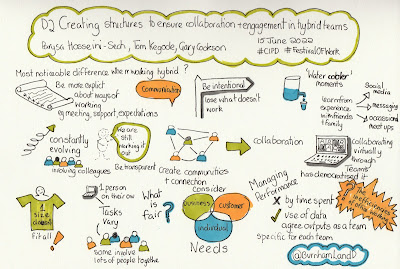 D2 Creating structures to ensure collaboration + engagement in hybrid teams
Parysa Hosseini-Sech, Tom Kegode, Gary Cookson
15 June 2022
#CIPD #FestivalOfWork
Most noticeable difference when working hybrid?
Be more explicit
about ways of
working
eg meeting, support, expectations
Communication
Be intentional
lose what doesn't
work
'Water cooler'
moments
learn from
experience
with friends
+ family
Social
media
messaging
occasional
meet ups
constantly
evolving
involving colleagues
We are
still
working it
out
Be transparent
Create communities
+ connection
collaboration
collaborating
virtually
through
Teams
has democratised it
1
size
doesn't
fit all!
1 person
on their own
Tasks
vary
some involve
lots of people together
What
is
fair?
Consider
business
customer
individual
Needs
Managing
Performance
x by time spent
✓ use of data
agree outputs as a team
specific for each team
inefficiencies
of office working
@BurnhamLandD